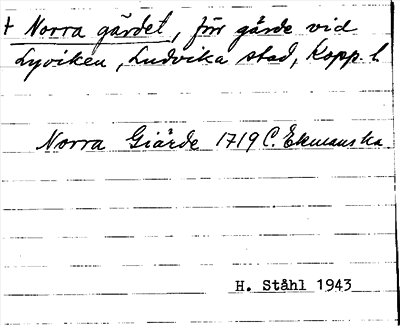 † Norra gärdet, förr gärde vid
Lyviken, Ludvika stad, Kopp. l.
Norra Giärde 1719 C. Ekmanska
H. Ståhl 1943